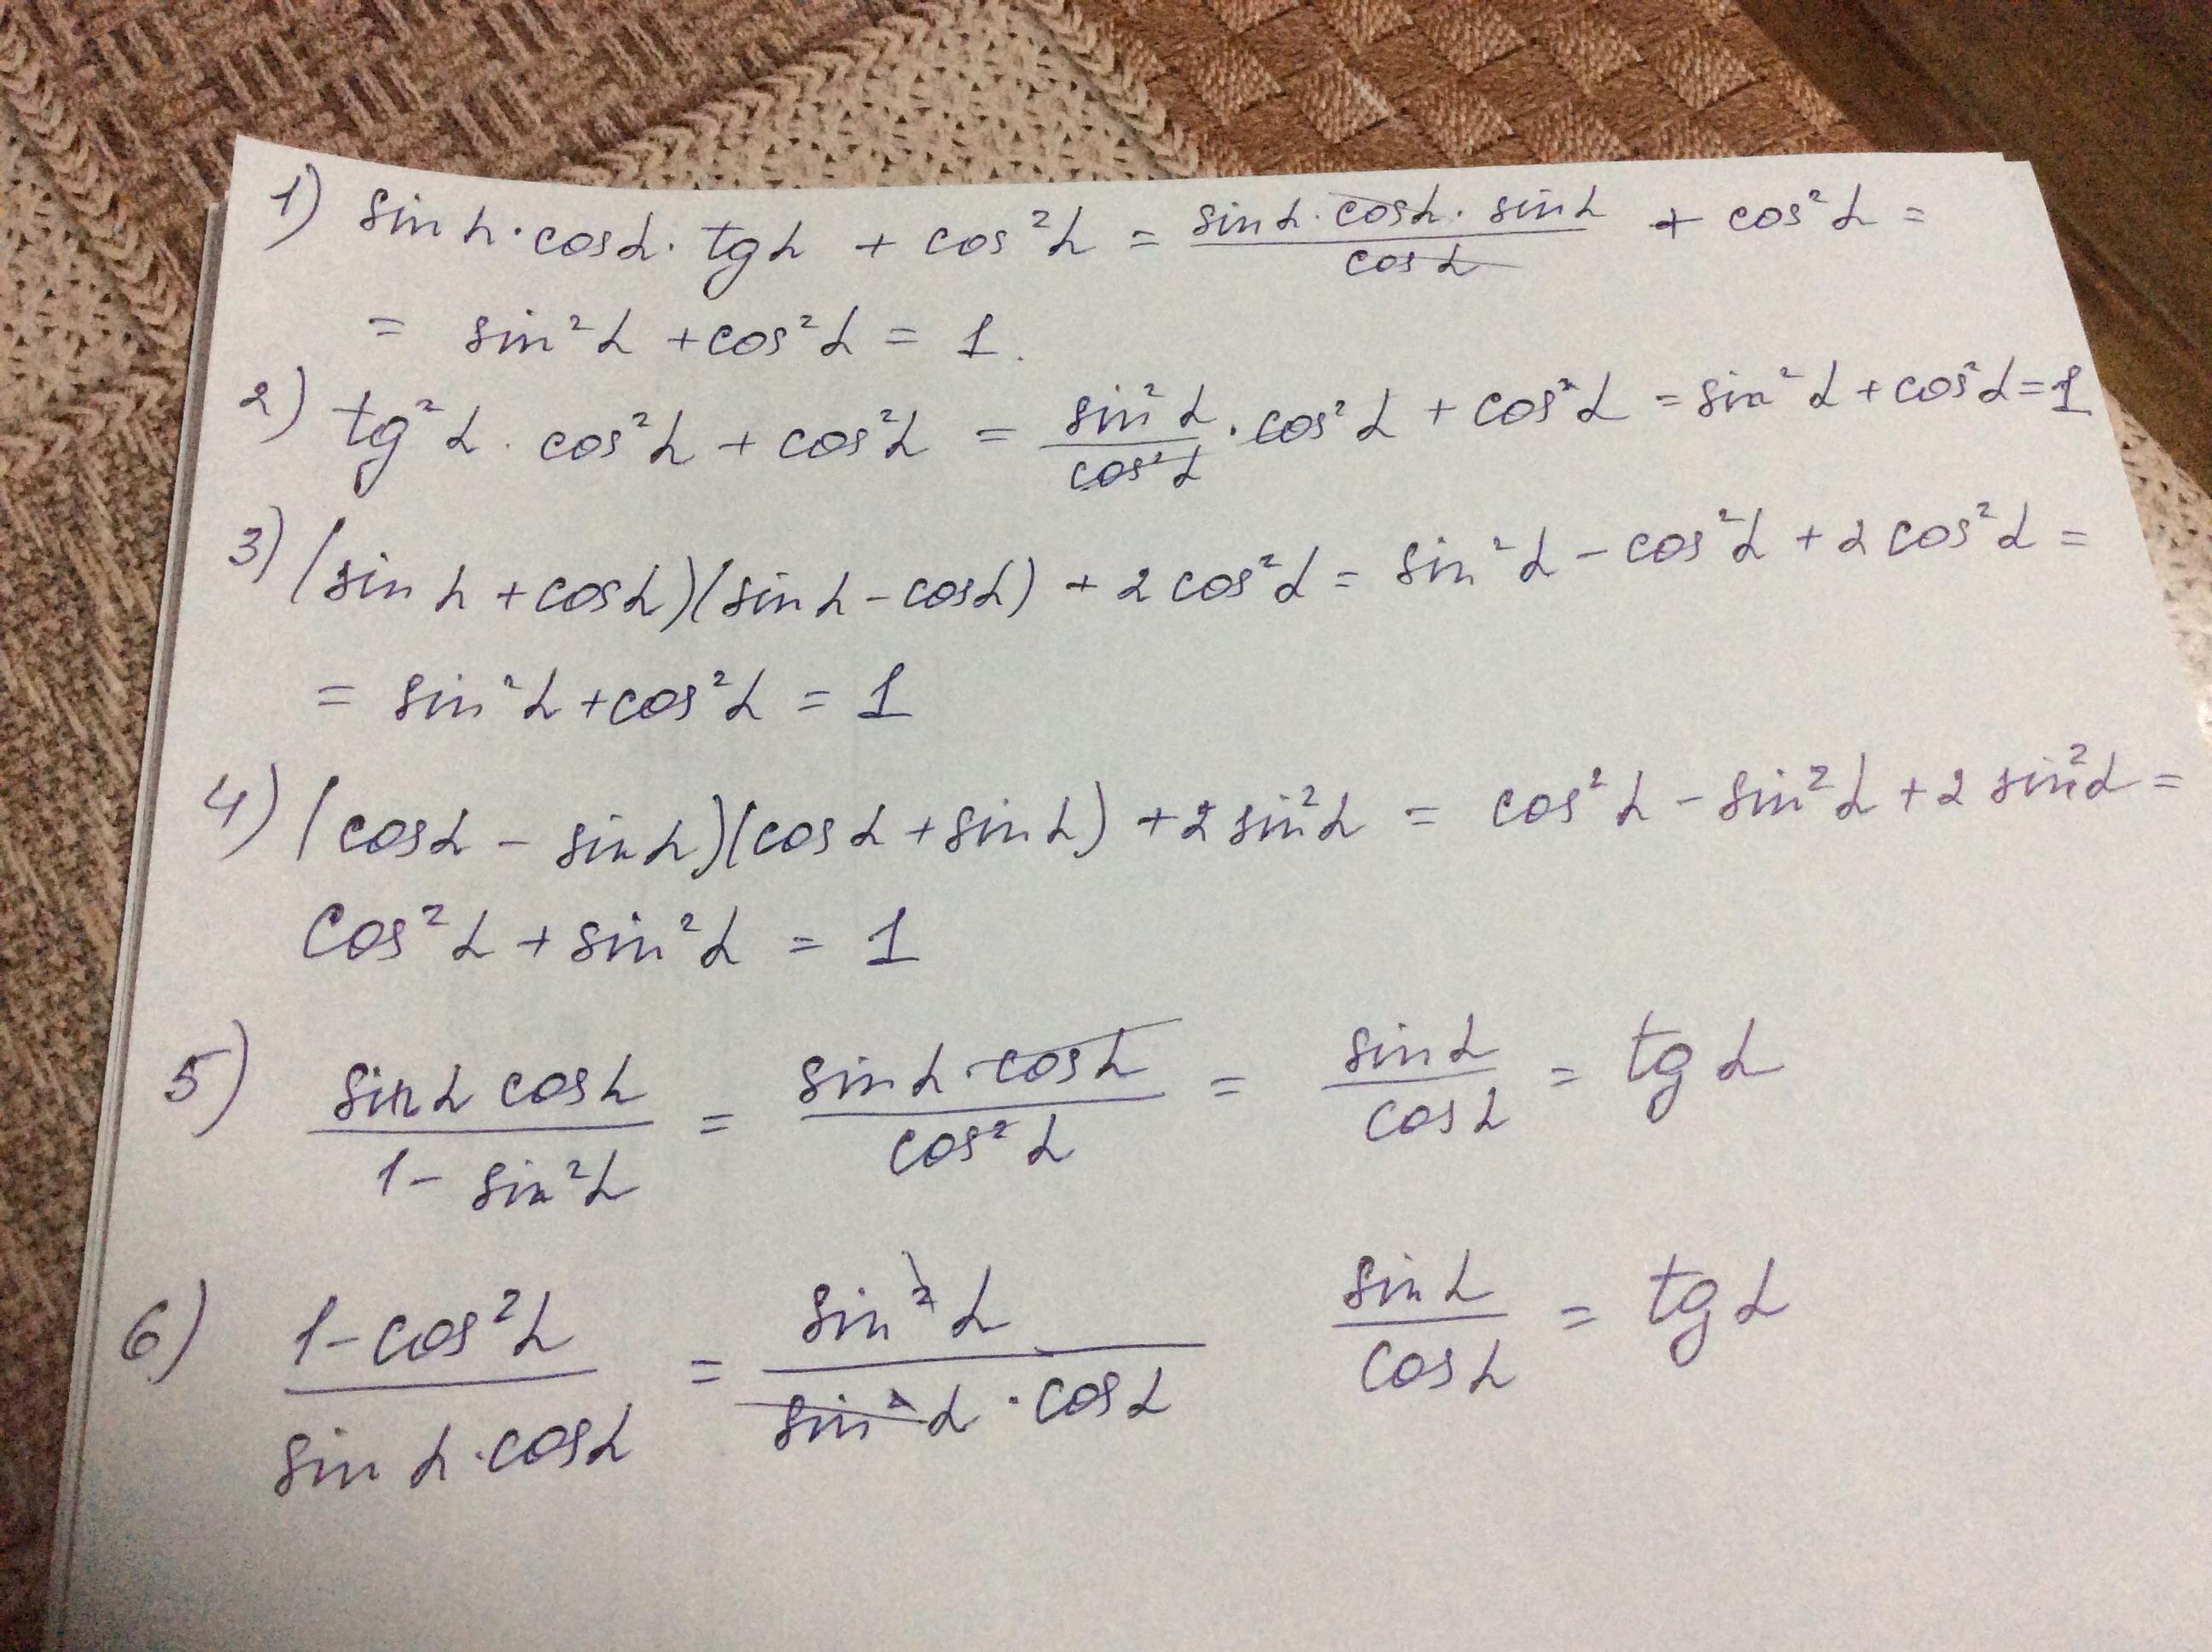 1) sin α · cos α · tg α + cos² α = (sin α · cos α · sin α)/(cos α) + cos² α =
= sin² α + cos² α = 1.
2) tg² α · cos² α + cos² α = (sin² α)/(cos² α) · cos² α + cos² α = sin² α + cos² α = 1
3) (sin α + cos α)(sin α - cos α) + 2 cos² α = sin² α - cos² α + 2 cos² α =
= sin² α + cos² α = 1
4) (cos α - sin α)(cos α + sin α) + 2 sin² α = cos² α - sin² α + 2 sin² α =
cos² α + sin² α = 1
5) (sin α cos α)/(1 - sin² α) = (sin α · cos α)/(cos² α) = (sin α)/(cos α) = tg α
6) (1 - cos² α)/(sin α · cos α) = (sin² α)/(sin² α · cos α) (sin α)/(cos α) = tg α